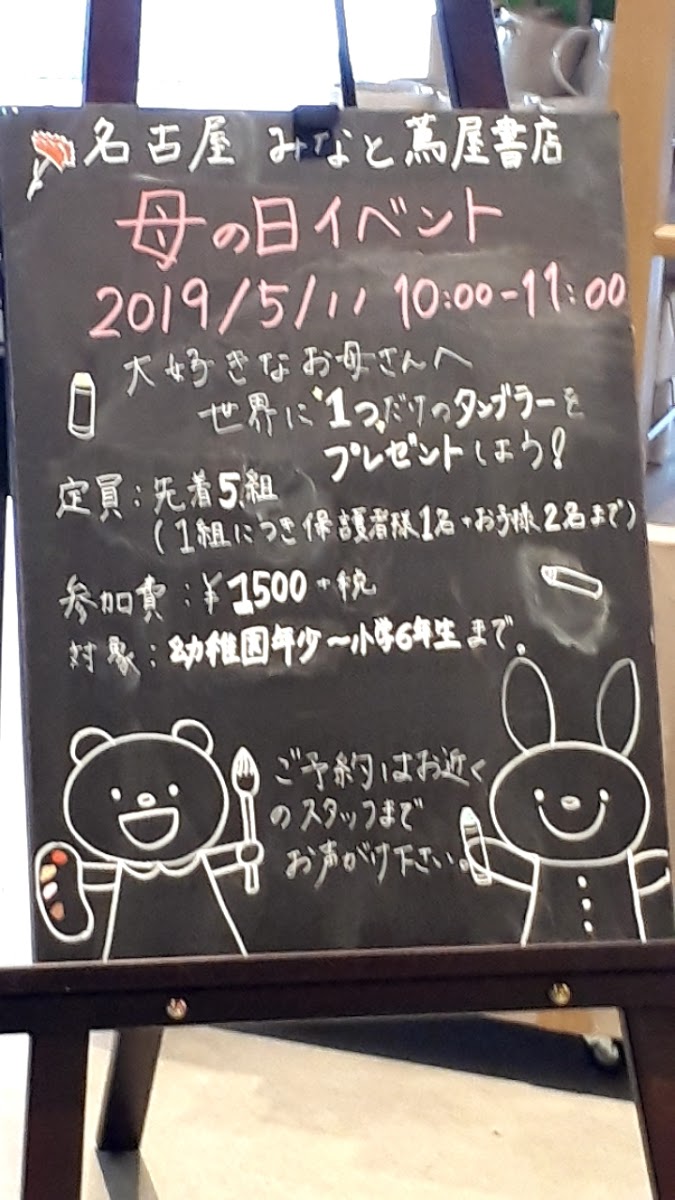 名古屋 みなと蔦屋書店
母の日イベント
2019/5/11 10:00-11:00
大好きなお母さんへ
世界に1つだけのタンブラーを
プレゼントしよう!
定員:先着5組
(1組につき保護者様1名・お子様2名まで)
参加費:¥1500+税
対象:幼稚園年少〜小学6年生まで。
ご予約はお近く
のスタッフまで
お声がけ下さい。